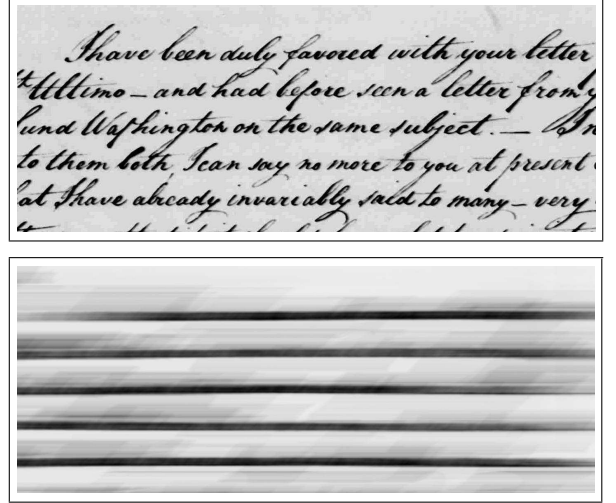 I have been duly favored with your letter
th Ultimo – and had before seen a letter from
Lund Washington on the same subject. — In
to them both, I can say no more to you at present
at I have already invariably said to many – very